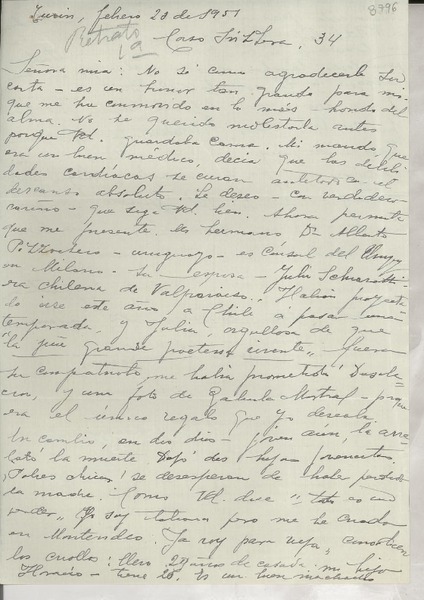 Turin, febrero 23 de 1951
8796
Retrato
Corso Svizzera, 34
Señora mia: No sé como agradecerle su
carta - es un honor tan grande para mi
que me ha conmovido en lo más hondo del
alma. No he querido molestarla antes
porque Ud. guardaba cama. Mi marido que
era un buen médico, decia que las debili
dades cardiacas se curan con el
descanso absoluto. Le deseo - con verdadero
cariño - que siga Ud. bien. Ahora permita
que me presente. Mi hermano Dr. Alberto
uruguayo - es Cónsul del Uruguay
en Milano. Su esposa - Julia
era chilena de Valparaiso. Habian proyecta
do irse este año a Chile a pasar una
temporada, y Julia, orgullosa de que
"la più grande poetessa vivente" fuera
su compatriota, me habia prometido Desola-
cion, y una foto de Gabriela Mistral - porque
era el único regalo que yo deseaba
En cambio, en dos dias - joven aún, la arre
bató la muerte Dejó dos hijos
Pobres chicos, se desesperan de haber perdido
la madre. Como Ud. dice "
Yo soy italiana pero me he criado
en Montevideo. Ya voy para vieja,
los criollos: llevo 29 años de casada. mi hijo
Horacio - tiene 28. Es un buen muchacho